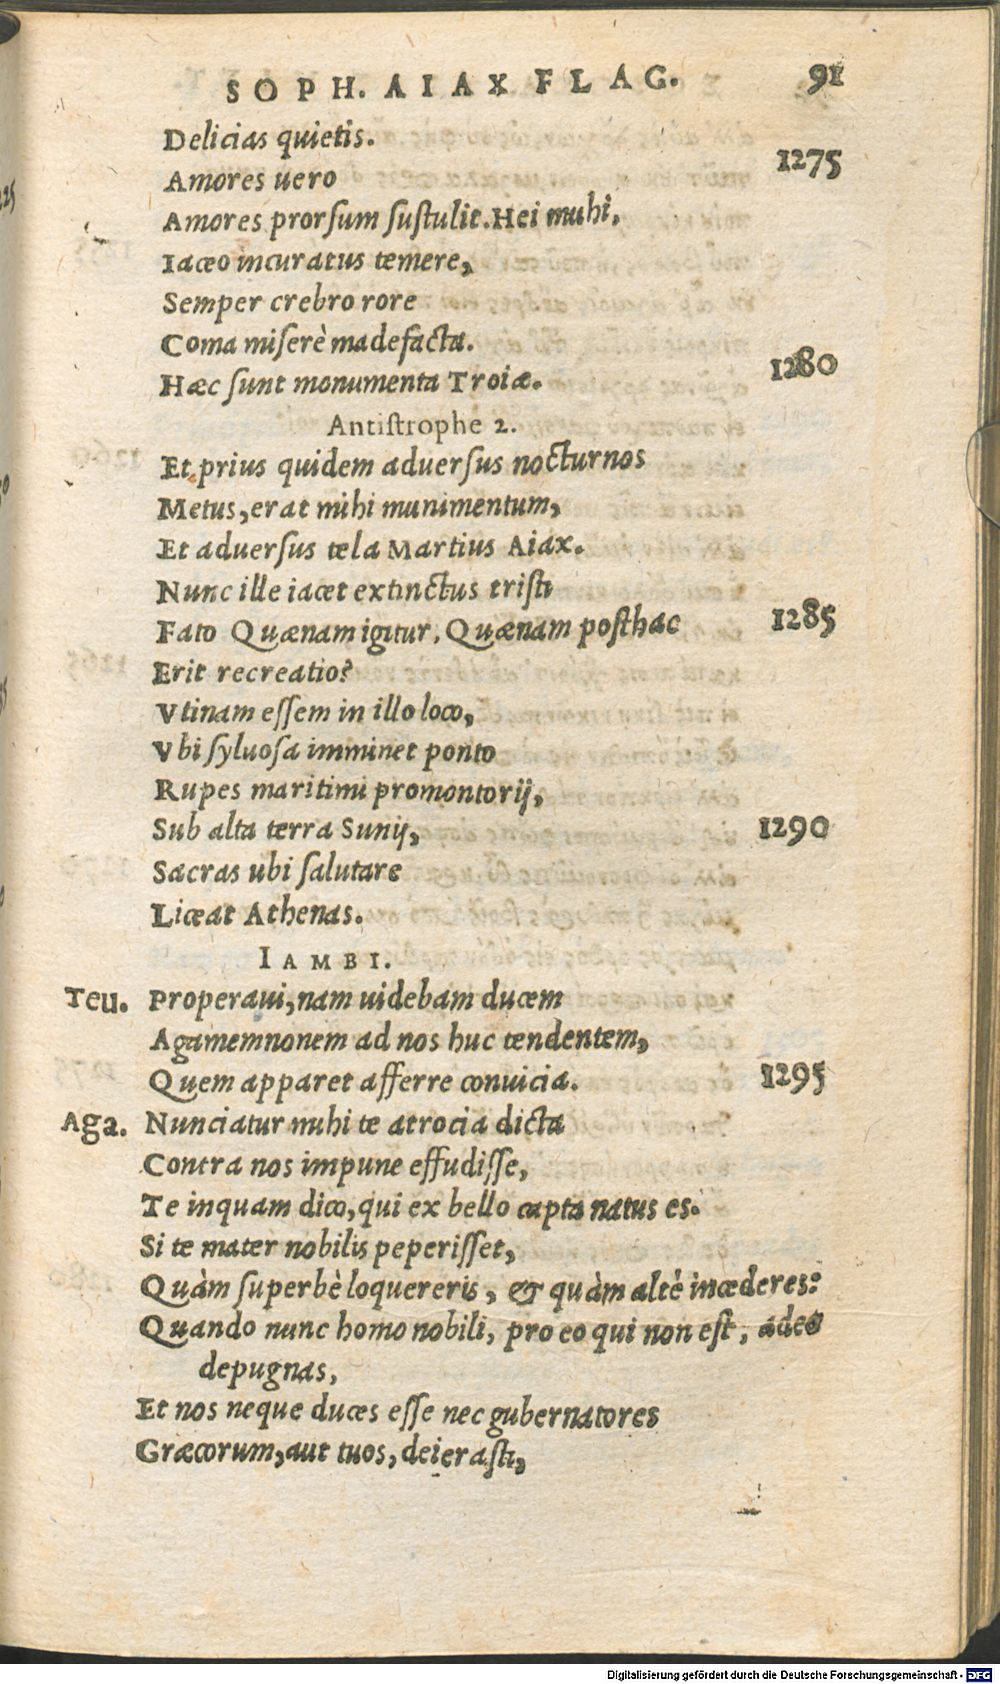 SOPH. AIAX FLAG. 91
Delicias quietis.
Amores uero 1275
Amores prorsum sustulit. Hei muhi,
Iaceo incuratus temere,
Semper crebro rore
Coma miserè madefacta.
Hæc sunt monumenta Troiæ. 1280
Antistrophe 2.
Et prius quidem aduersus nocturnos
Metus, erat mihi munimentum,
Et aduersus tela Martius Aiax.
Nunc ille iacet extinctus tristi
Fato Quænam igitur, Quænam posthac 1285
Erit recreatio?
Vtinam essem in illo loco,
Vbi syluosa imminet ponto
Rupes maritimi promontorij,
Sub alta terra Sunij, 1290
Sacras ubi salutare
Liceat Athenas.
IAMBI.
Teu. Properaui, nam uidebam ducem
Agamemnonem ad nos huc tendentem,
Quem apparet afferre conuicia. 1295
Aga. Nunciatur mihi te atrocia dicta
Contra nos impune effudisse,
Te inquam dico, qui ex bello capta natus es.
Si te mater nobilis peperisset,
Quàm superbè loquereris, & quàm altè incederes:
Quando nunc homo nobili, pro eo qui non est, adeo
depugnas,
Et nos neque duces esse nec gubernatores
Græcorum, aut tuos, deierasti,
Digitalisierung gefördert durch die Deutsche Forschungsgemeinschaft - DFG